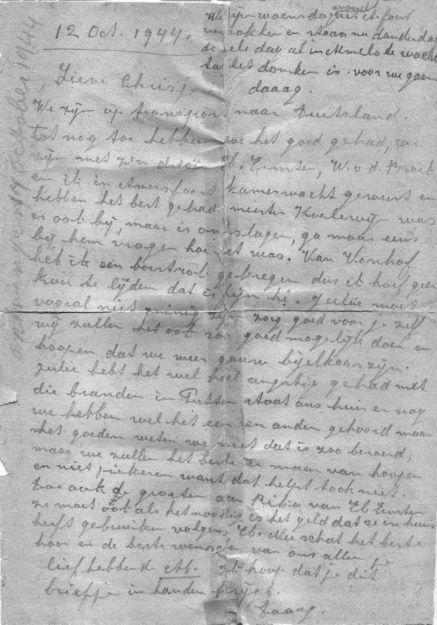 12 Oct. 1944.
We zijn woensdagavond
vertrokken en staan nu donderdag
de hele dag al in
tot het donker is voor we gaan
daaag.
Lieve Chrisje
We zijn op transport naar Duitsland.
tot nog toe hebben we het goed gehad, we
zijn met z'n drieën E. W. v. d.
en ik in Amersfoort kamerwacht geweest en
hebben het best gehad meester was
er ook bij, maar is ontslagen, ga maar eens
bij hem vragen hoe het was. Van
heb ik een gekregen dus ik hoef geen
kou te lijden dat is fijn hè. Jullie moet
vooral niet zorg goed voor je zelf
wij zullen het ook zoo goed mogelijk doen en
hopen dat we weer gauw bij elkaar zijn.
Jullie hebt het wel heel angstig gehad met
die branden in Putten staat ons huis er nog
we hebben wel het een en ander gehoord maar
het goeden weten we niet dat is zoo beroerd,
maar we zullen het beste er maar van hopen
en niet piekeren want dat helpt toch niet.
Doe ook de groeten aan van
ze moet ook als het noodig is het geld dat ze in huis
heeft gebruiken volgens Eb. Nu schat het beste
hoor en de beste wenschen van ons allen je
liefhebbende Ik hoop dat je dit
briefje in handen krijgt.
Daaag.
aangekomen 14 October 1944